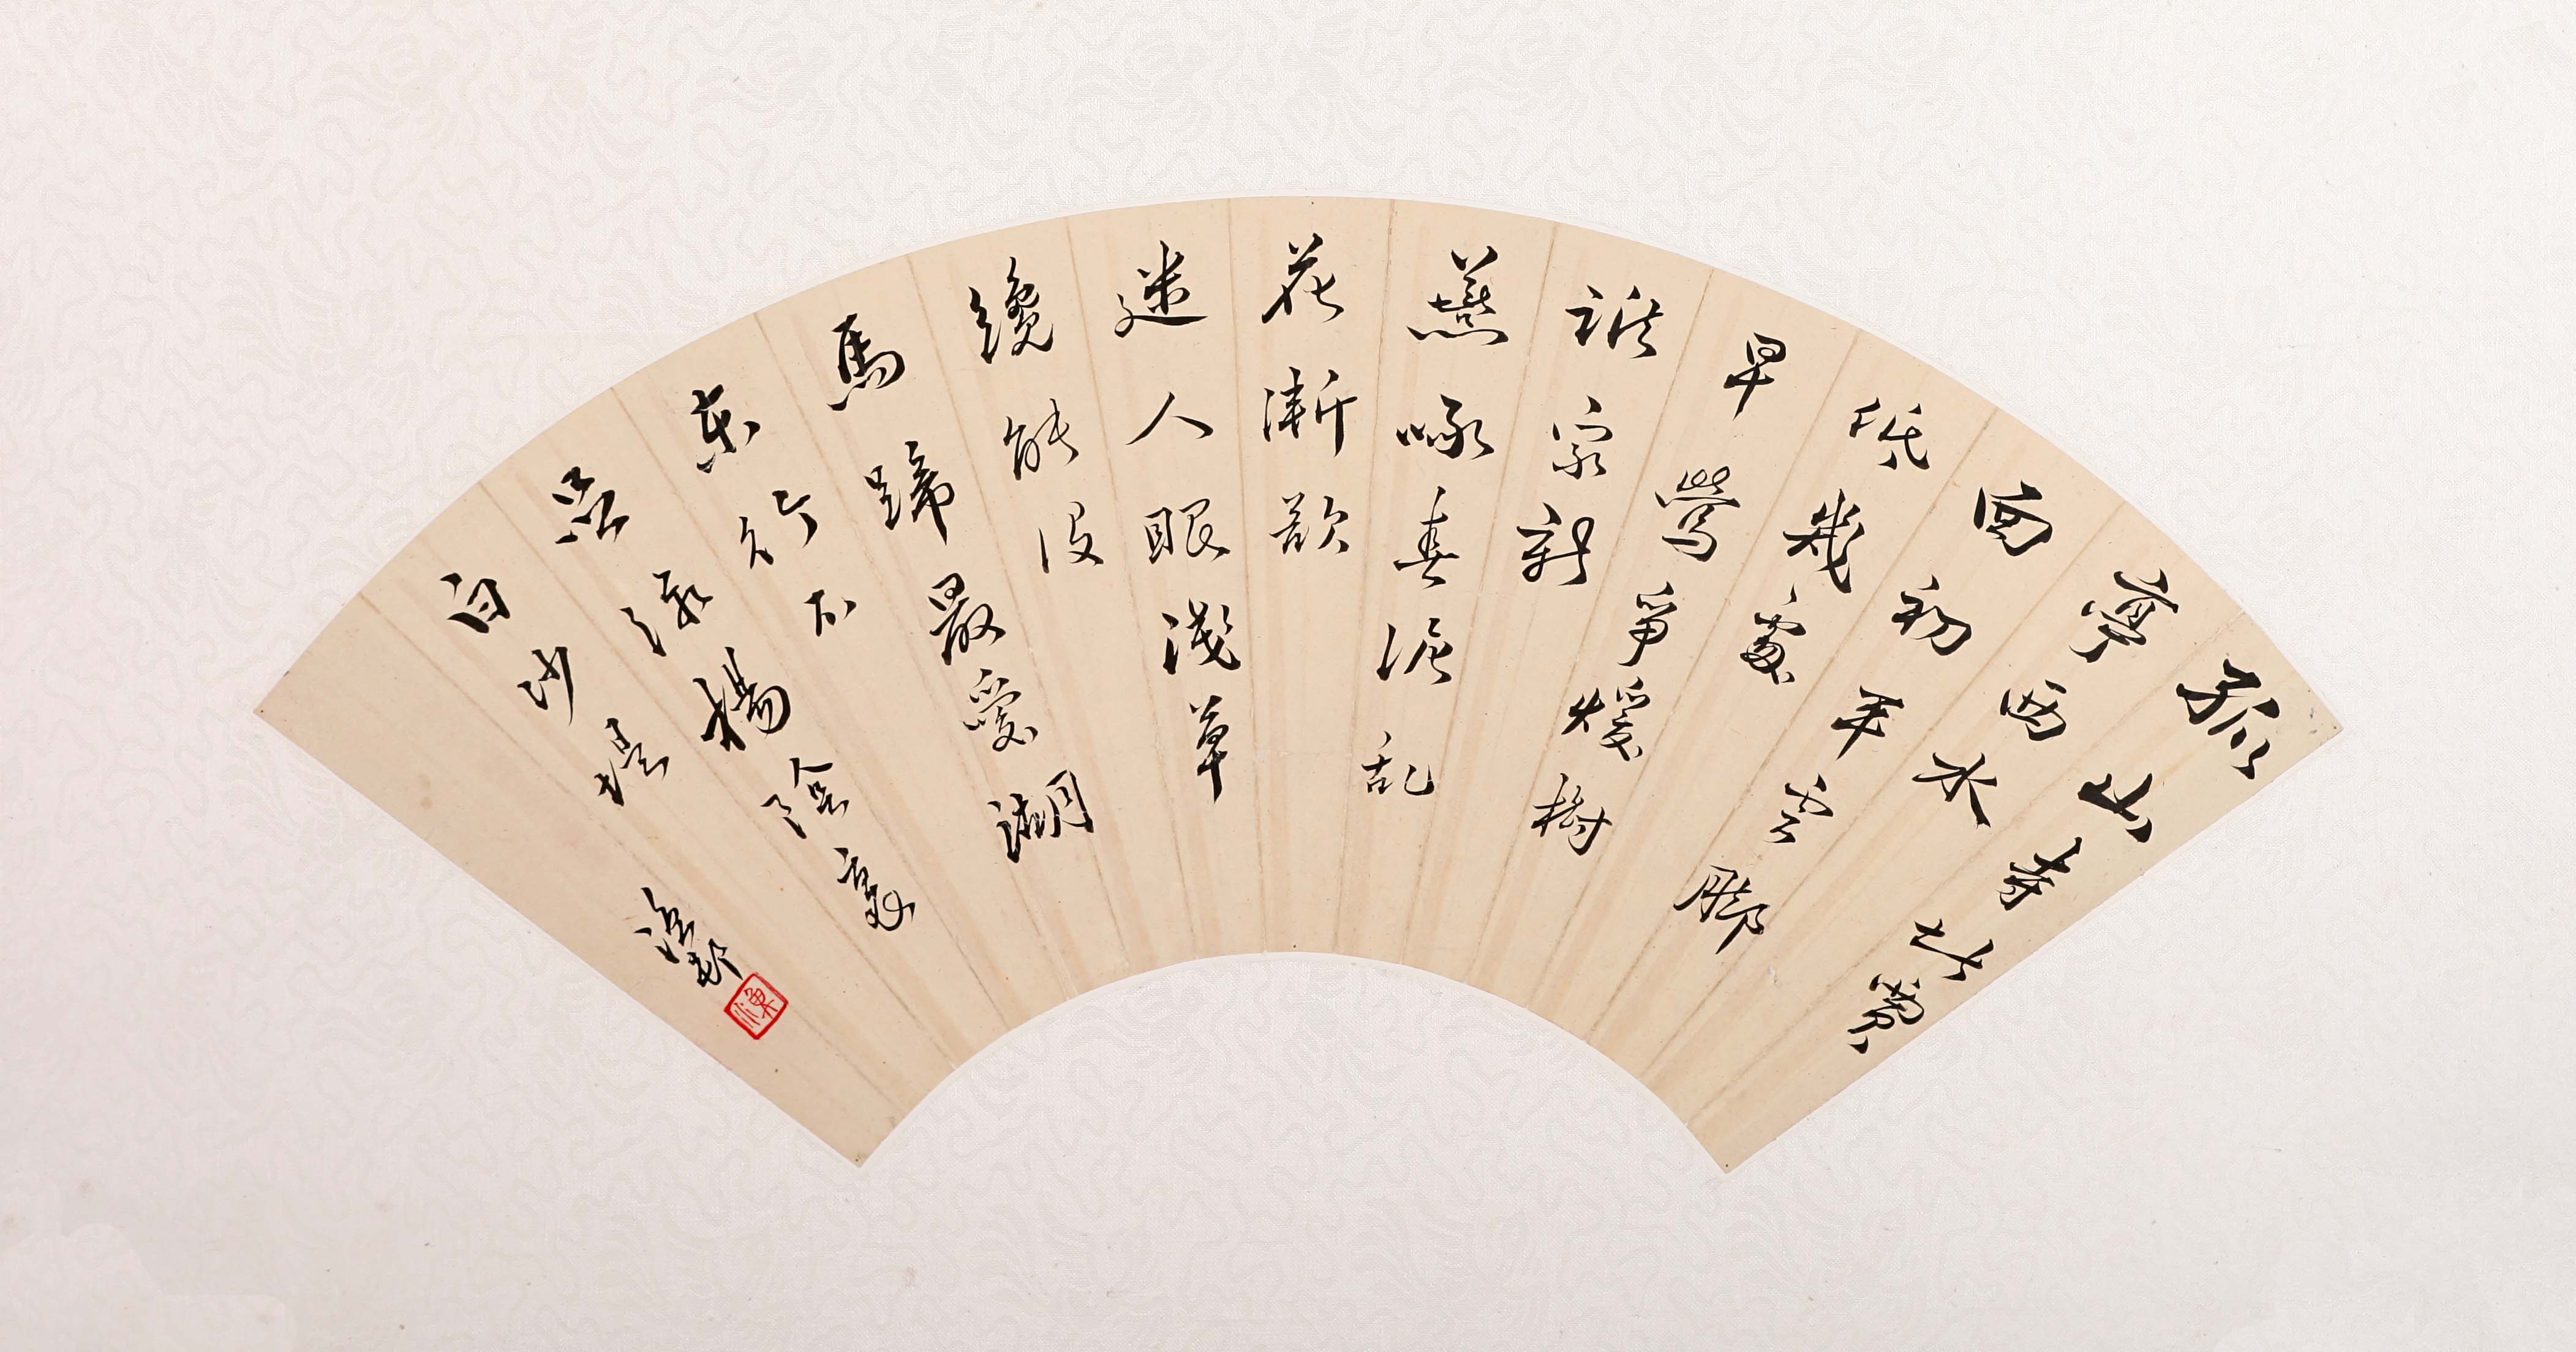 孤山寺北賈
亭西水
面初平雲脚
低幾處
早鶯爭煖樹
誰家新
燕啄春泥乱
花漸欲
迷人眼淺草
纔能没
馬蹄最愛湖
東行不
足綠楊陰裏
白沙堤